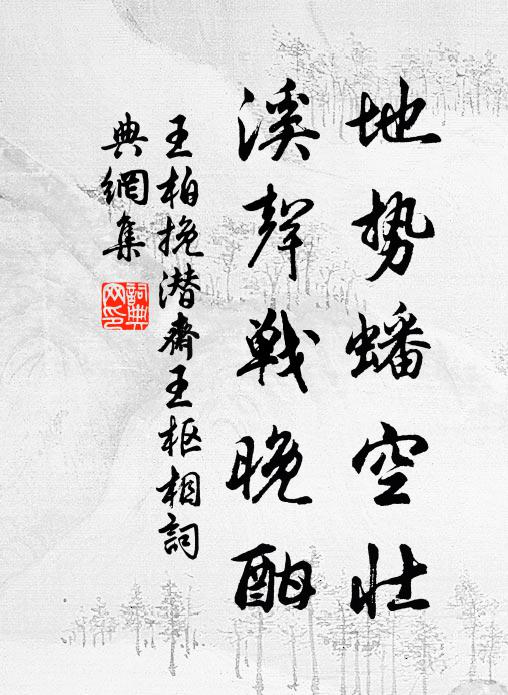 地势蟠空壮
溪聲戰晚酣
王柏挽潜齋王枢相詞
典網集
詞典網印